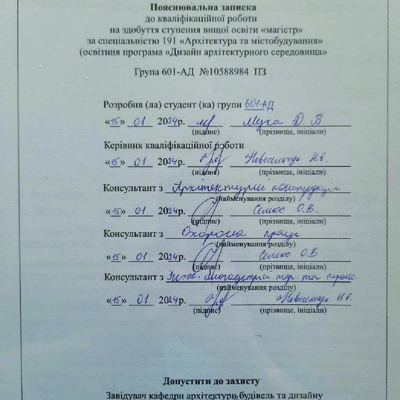 Пояснювальна записка
до кваліфікаційної роботи
на здобуття ступення вищої освіти «магістр»
за спеціальністю 191 «Архітектура та містобудування»
(освітння програма «Дизайн архітектурного середовища»
Група 601-АД №10588984 ПЗ
Розробив (ла) студент (ка) групи 601-АД
«15» 01 2024р. Мука Д. В
(підпис) (прізвище, ініціали)
Керівник кваліфікаційної роботи
«15» 01 2024р.
(підпис) (прізвище, ініціали)
Консультант з Архітектурні конструкції
(найменування розділу)
«15» 01 2024р. Семко О.В.
(підпис) (прізвище, ініціали)
Консультант з Охорона праці
(найменування розділу)
«15» 01 2024р. Семко О.В
(підпис) (прізвище, ініціали)
Консультант з Інж. благоустрій тер. та
(найменування розділу)
«15» 01 2024р.
(підпис) (прізвище, ініціали)
Допустити до захисту
Завідувач кафедри архітектури будівель та дизайну